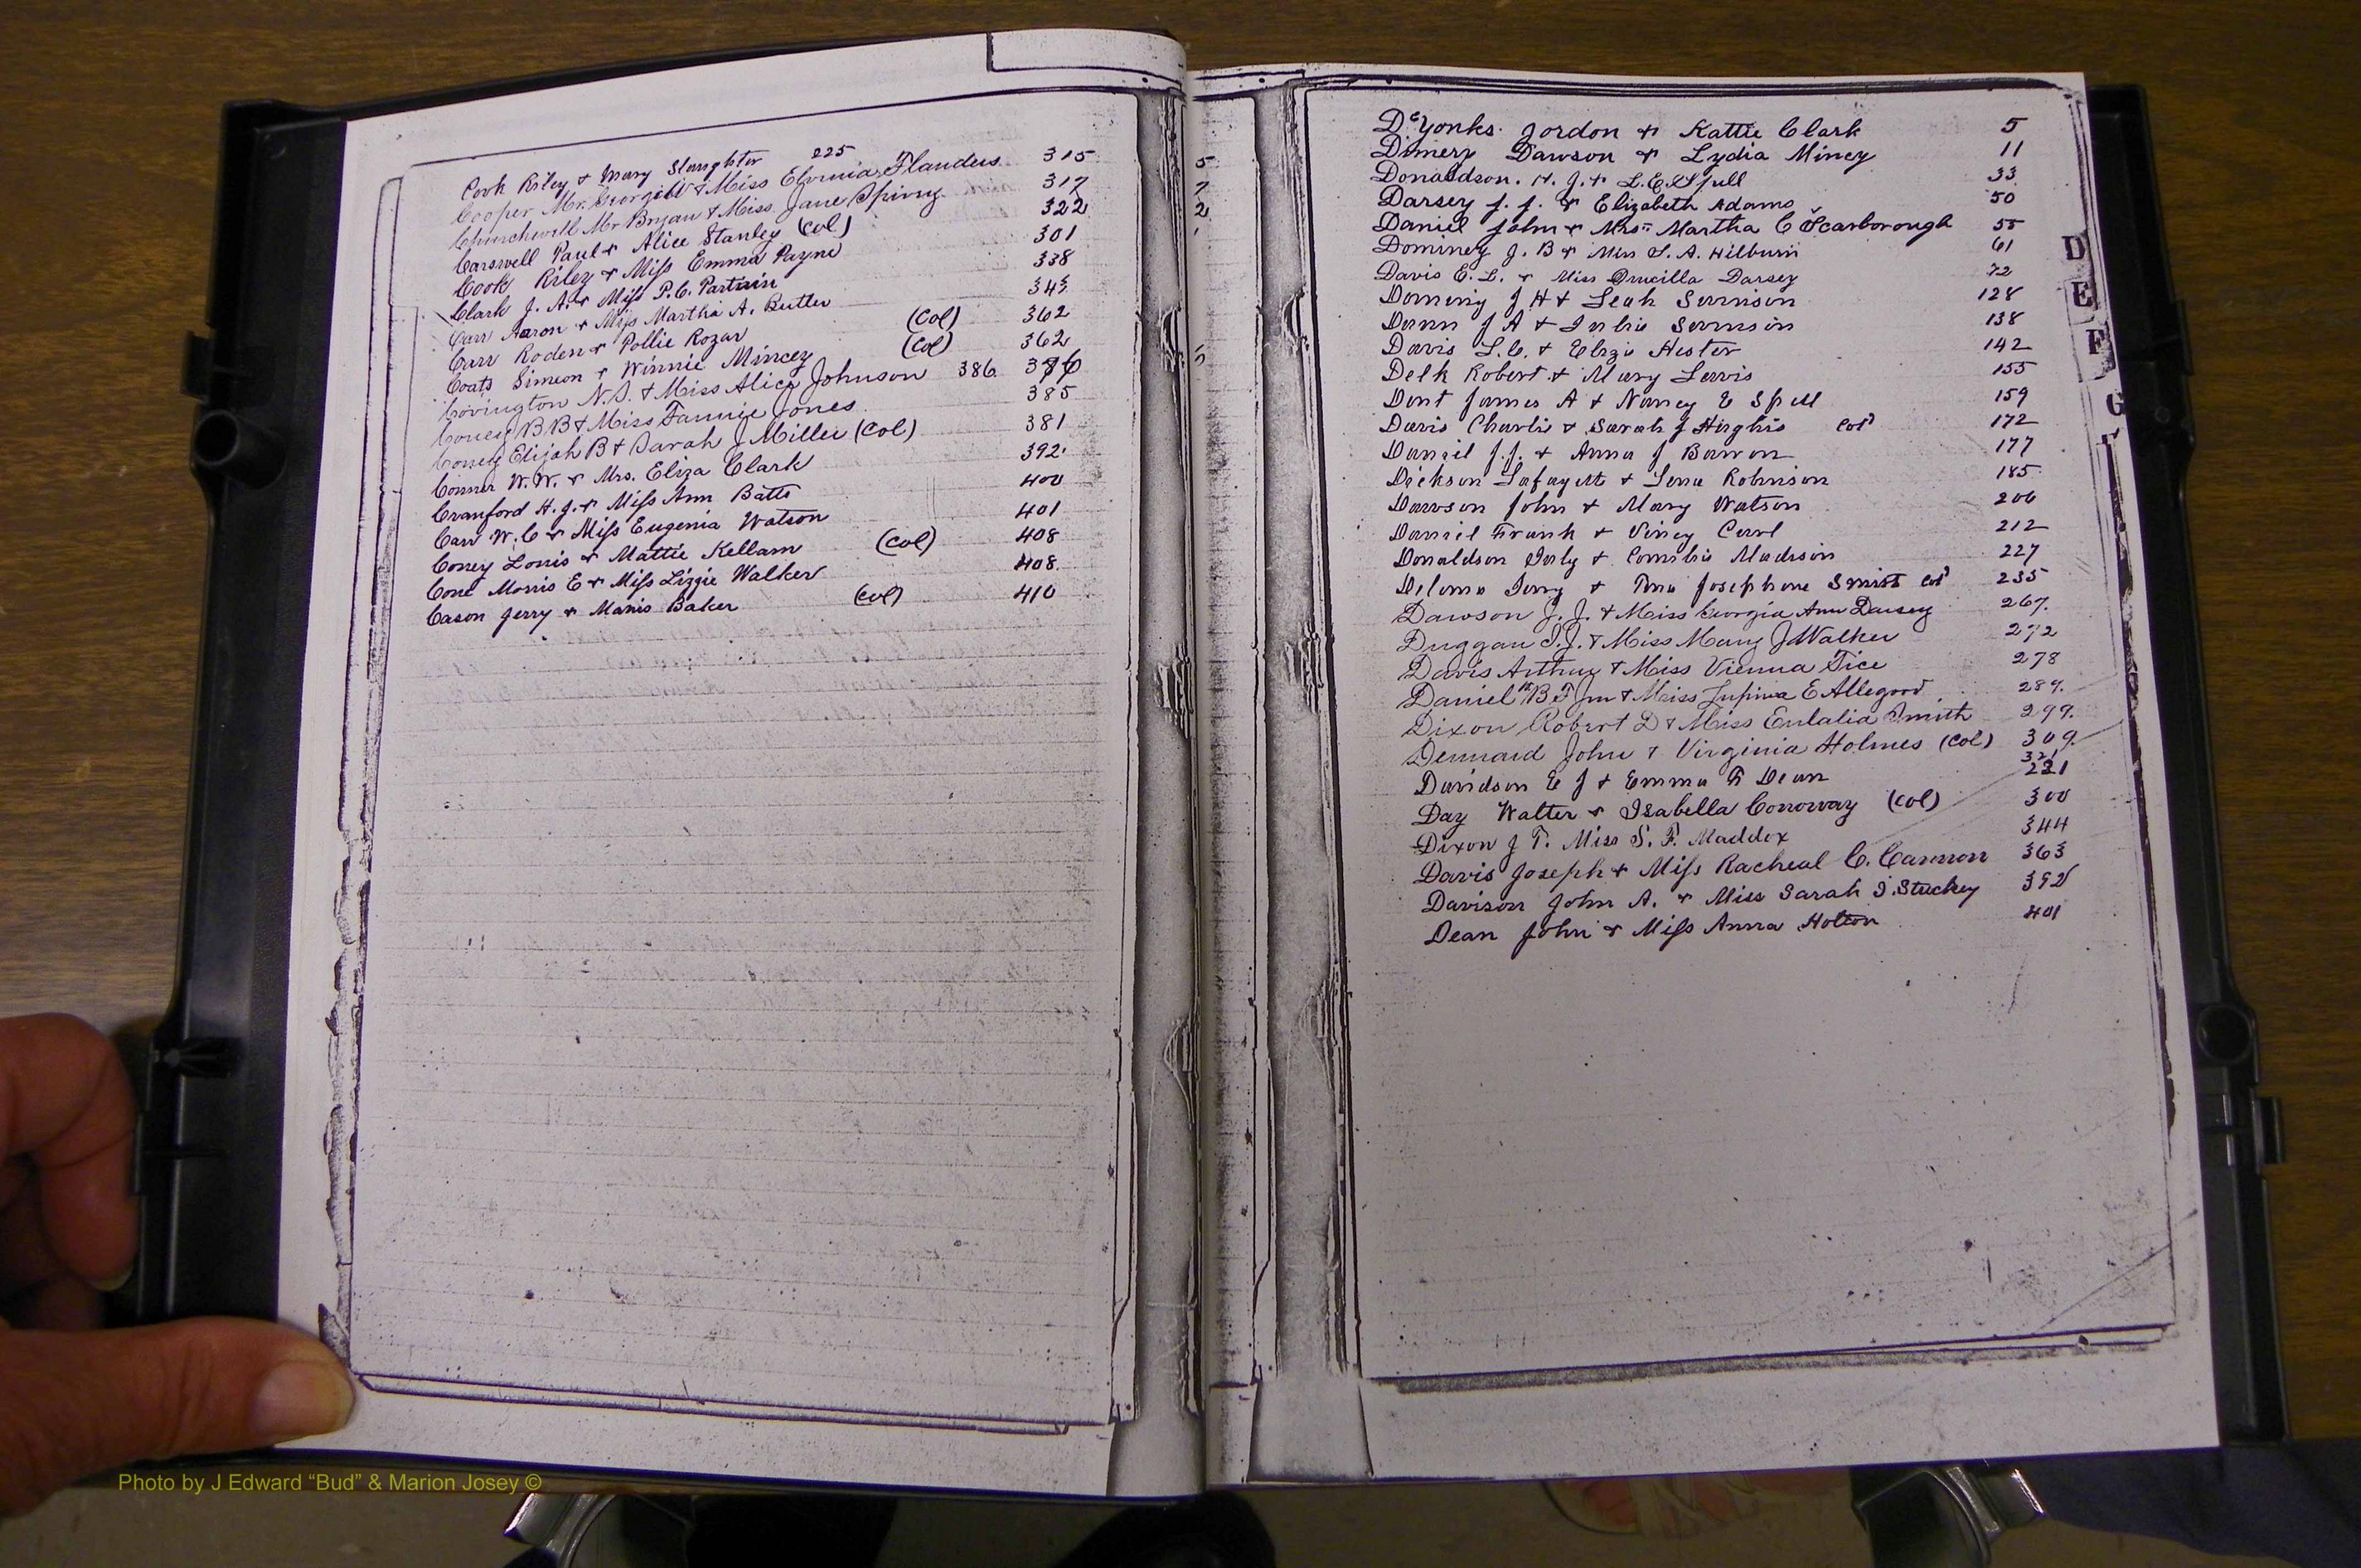 Cook Riley & Mary Slaughter 225
Cooper Mr. Georgill & Miss Elvinia Flanders 315
Churchwell Mr Bryan & Miss Jane Spivey 317
Carswell Paul & Alice Stanley (Col) 322
Cook Riley & Miss Emma Payne 301
Clark J. A. & Miss P. C. Partain 338
Carr Aaron & Miss Martha A. Butler 343
Carr Roden & Pollie Rozar (Col) 362
Coats Simeon & Winnie Mincey (Col) 362
Covington N. S. & Miss Alice Johnson 386 376
Coney B B & Miss Fannie Jones 385
Coney Elijah B & Sarah J Miller (Col) 381
Conner W. W. & Mrs. Eliza Clark 392
Cranford H. J. & Miss Ann Batts 400
Carr W. C & Miss Eugenia Watson 401
Coney Louis & Mattie Kellam (Col) 408
Cone Morris E & Miss Lizzie Walker 408
Cason Jerry & Manis Baker (Col) 410
5
7
2
DeYonks Jordon & Kattie Clark 5
Dimery Dawson & Lydia Mincy 11
Donaldson. H. J. & L. E. Spell 33
Darsey J. J. & Elizabeth Adams 50
Daniel John & Mrs Martha C Scarborough 55
Dominey J. B & Miss S. A. Hilburn 61
Davis E. L. & Miss Drucilla Darsey 72
Dominy J H & Leah Sumison 128
Dann J A & Sumison 138
Davis L. C. & Elizie Hester 142
Delk Robert & Mary Lewis 155
Dent James A & Nancy E Spell 159
Davis Charlie & Sarah J Hughis Col 172
Daniel J. J. & Anna J Barron 177
Dickson Lafayett & Lena Robinson 185
Dawson John & Mary Watson 206
Daniel Frank & Viney Carl 212
Donaldson & Madison 227
Jerry & Josephine Smith Col 235
Dawson J. J. & Miss Georgia Ann Darsey 267
Duggan I. J. & Miss Mary J Walker 272
Davis Arthur & Miss Vienna Tice 278
Daniel B F Jnr & Miss E Allegood 289
Dixon Robert D & Miss Eulalia Smith 299
Dennard John & Virginia Holmes (Col) 309
Davidson E J & Emma F Dean 321 221
Day Walter & Isabella Conoway (Col) 300
Dixon J T. Miss S. F. Maddox 344
Davis Joseph & Miss Racheal C. Cannon 363
Davison John A. & Miss Sarah I. Stuckey 392
Dean John & Miss Anna Holton 401
D
E
F
G
Photo by J Edward “Bud” & Marion Josey ©